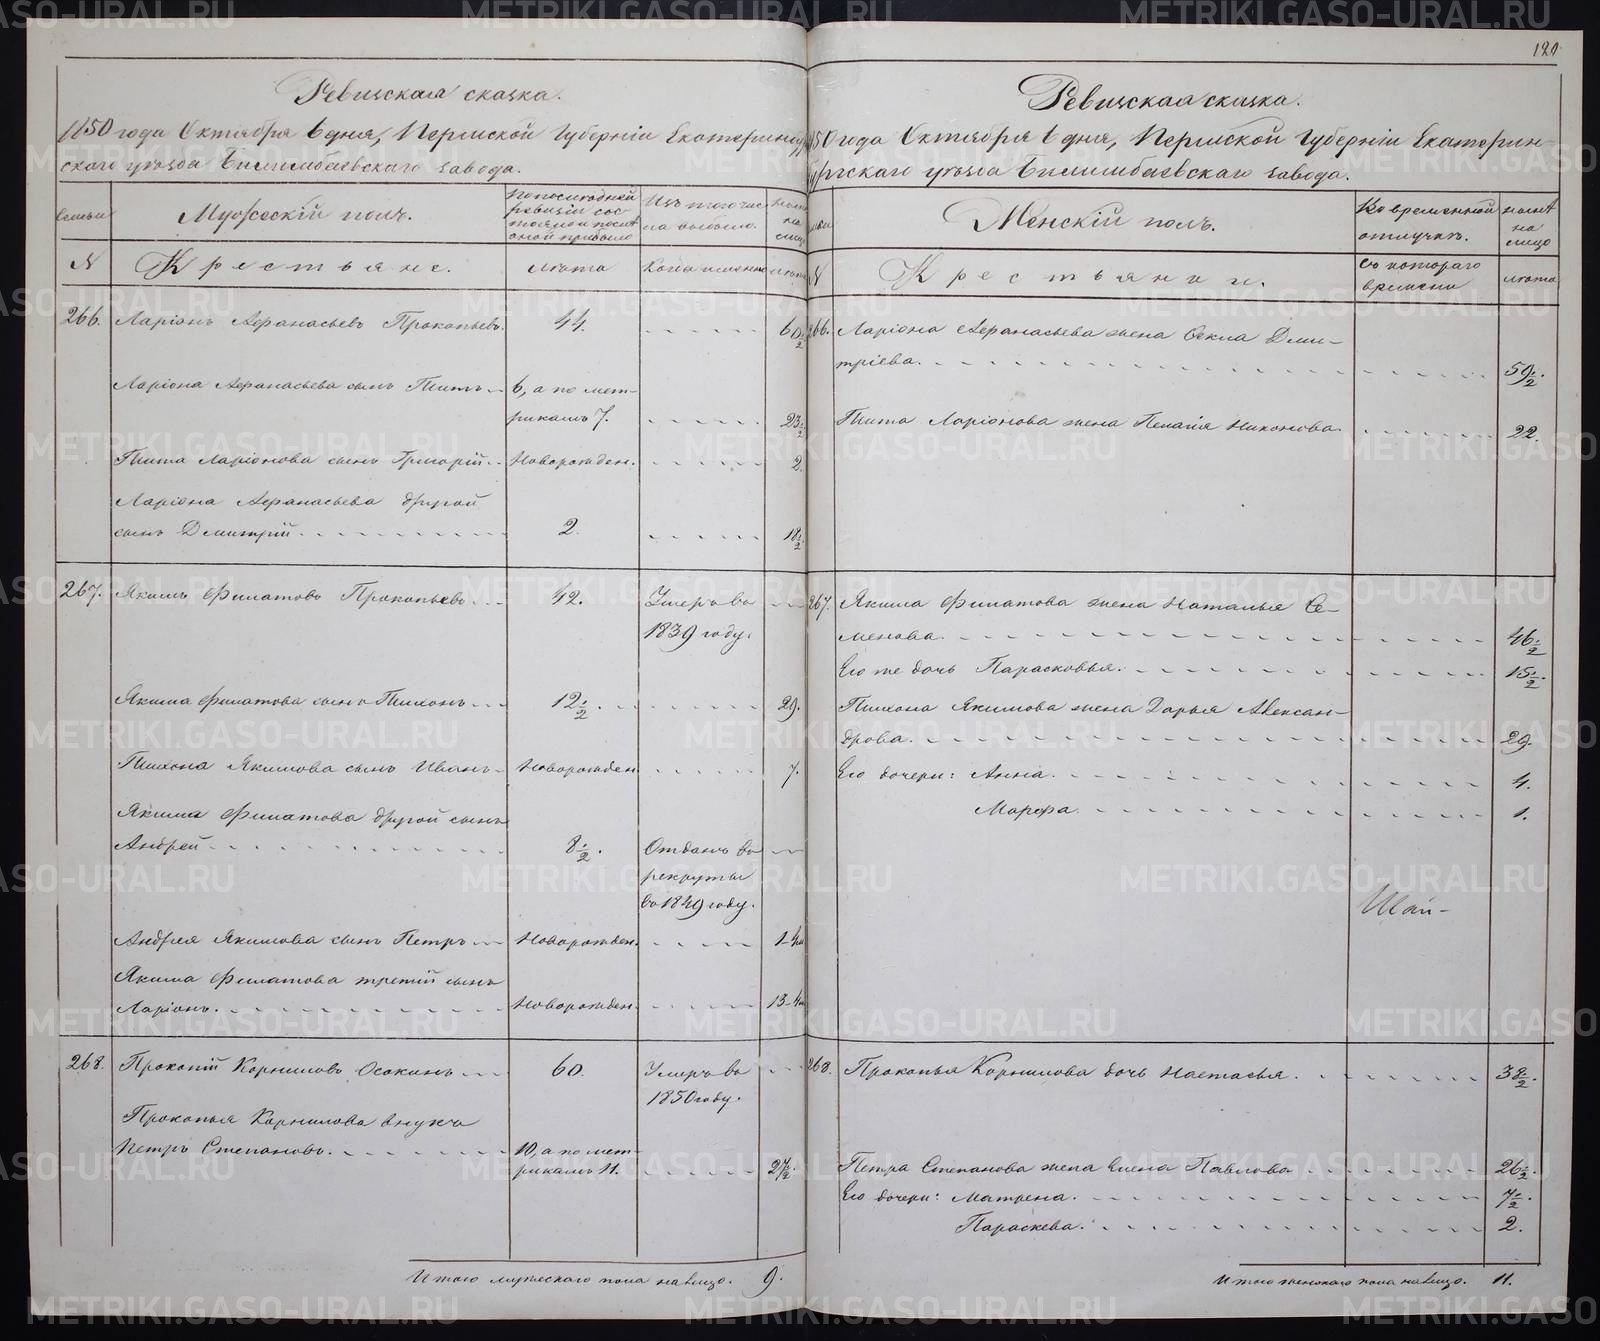 120
Ревизская сказка.
1850 года Октября 6 дня, Пермской Губернiи Екатеринбург-
скаго уѣзда Билимбаевскаго завода.
Семьи
Мужескiй полъ.
По послѣдней ревизiи состояло и послѣ оной прибыло
Изъ того числа выбыло.
Нынѣ на лицо
№
Крестьяне.
Лѣта
Когда именно
Лѣта
266. Ларiонъ Аѳанасьевъ Прокопьевъ. 44. 60½
Ларiона Аѳанасьева сынъ Титъ 6, а по мет-
рикамъ 7. 23½
Тита Ларiонова сынъ Григорiй Новорожден. 2.
Ларiона Аѳанасьева другой
сынъ Дмитрiй. 2. 18½
267. Якимъ Филатовъ Прокопьевъ 42. Умеръ въ
1839 году.
Якима Филатова сынъ Тихонъ 12½. 29.
Тихона Якимова сынъ Иванъ Новорожден. 7.
Якима Филатова другой сынъ
Андрей 8½. Отданъ въ
рекруты
въ 1849 году.
Андрея Якимова сынъ Петръ Новорожден. 1-4м
Якима Филатова третiй сынъ
Ларiонъ. Новорожден. 13-4м
268. Прокопiй Корниловъ Осокинъ 60. Умеръ въ
1850 году.
Прокопья Корнилова внукъ
Петръ Степановъ. 10, а по мет-
рикамъ 11. 27½.
Итого мужескаго пола на лицо. 9.
Ревизская сказка.
1850 года Октября 6 дня, Пермской Губернiи Екатерин-
бургскаго уѣзда Билимбаевскаго завода.
Семьи
Женскiй полъ.
Во временной отлучкѣ.
Нынѣ на лицо
№
Крестьянки.
Съ котораго времени
Лѣта
266. Ларiона Аѳанасьева жена Ѳекла Дми-
трiева. 59½.
Тита Ларiонова жена Пелагiя Никонова. 22.
267. Якима Филатова жена Наталья Се-
менова. 46½
Его же дочь Парасковья. 15½.
Тихона Якимова жена Дарья Алексан-
дрова. 29.
Его дочери: Анна. 4.
Марфа. 1.
268. Прокопья Корнилова дочь Настасья. 38½.
Петра Степанова жена Елена Павлова 26½.
Его дочери: Матрена. 7½.
Параскева. 2.
Итого женскаго пола на лицо. 11.
METRIKI.GASO-URAL.RU